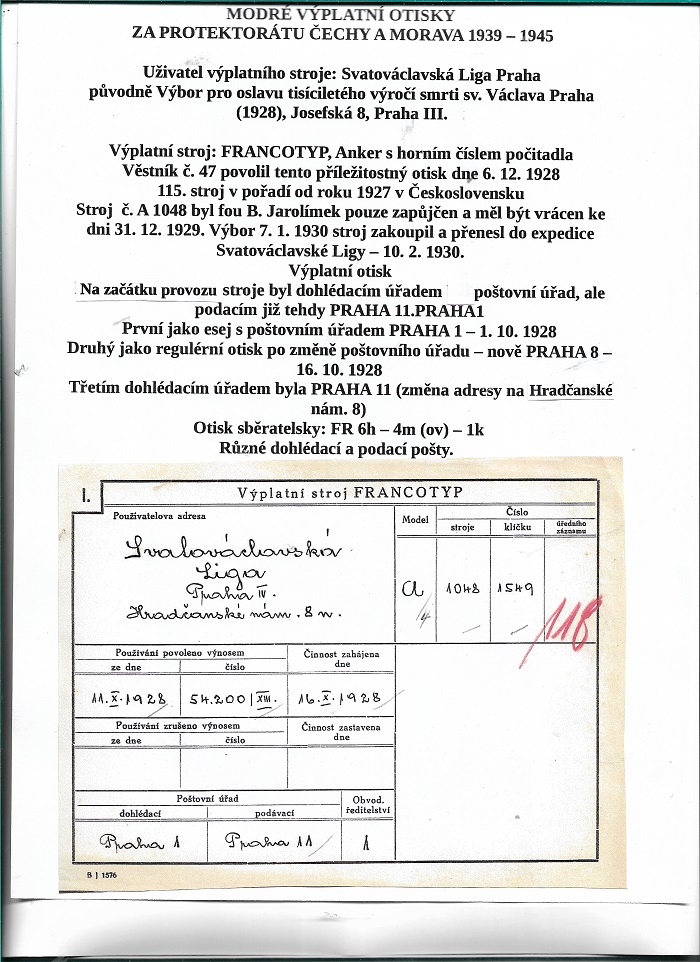 MODRÉ VÝPLATNÍ OTISKY
ZA PROTEKTORÁTU ČECHY A MORAVA 1939 – 1945
Uživatel výplatního stroje: Svatováclavská Liga Praha
původně Výbor pro oslavu tisíciletého výročí smrti sv. Václava Praha
(1928), Josefská 8, Praha III.
Výplatní stroj: FRANCOTYP, Anker s horním číslem počitadla
Věstník č. 47 povolil tento příležitostný otisk dne 6. 12. 1928
115. stroj v pořadí od roku 1927 v Československu
Stroj č. A 1048 byl fou B. Jarolímek pouze zapůjčen a měl být vrácen ke
dni 31. 12. 1929. Výbor 7. 1. 1930 stroj zakoupil a přenesl do expedice
Svatováclavské Ligy – 10. 2. 1930.
Výplatní otisk
Na začátku provozu stroje byl dohlédacím úřadem poštovní úřad, ale
podacím již tehdy PRAHA 11.PRAHA1
První jako esej s poštovním úřadem PRAHA 1 – 1. 10. 1928
Druhý jako regulérní otisk po změně poštovního úřadu – nově PRAHA 8 –
16. 10. 1928
Třetím dohlédacím úřadem byla PRAHA 11 (změna adresy na Hradčanské
nám. 8)
Otisk sběratelsky: FR 6h – 4m (ov) – 1k
Různé dohlédací a podací pošty.
I. Výplatní stroj FRANCOTYP
Používatelova adresa Model Číslo
stroje klíčku úředního záznamu
Svatováclavská
Liga
Praha IV.
Hradčanské nám. 8 n.
A 1048 1549
/4
118
Používání povoleno výnosem Činnost zahájena dne
ze dne číslo
11.X.1928 54.200/XIII. 16.X.1928
Používání zrušeno výnosem Činnost zastavena dne
ze dne číslo
Poštovní úřad Obvod. ředitelství
dohlédací podávací
Praha 1 Praha 11 1
B J 1576